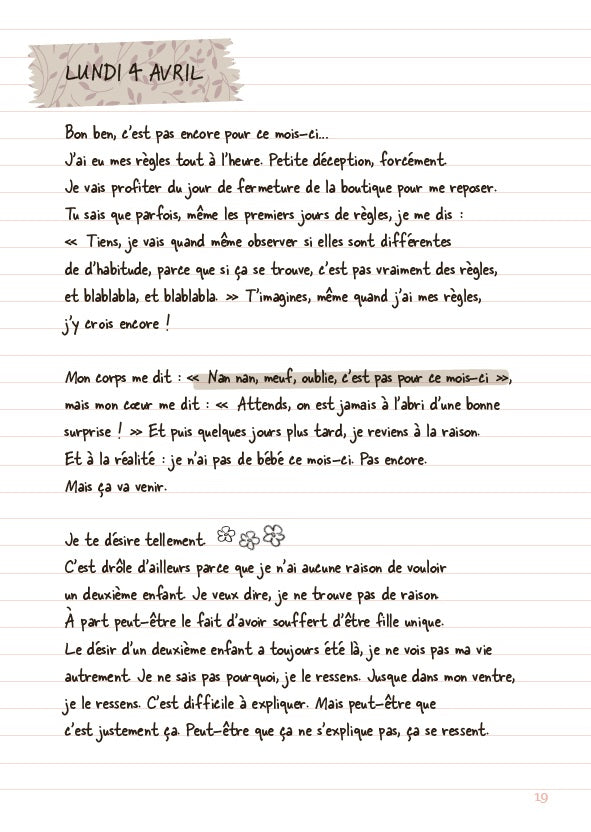 LUNDI 4 AVRIL
Bon ben, c'est pas encore pour ce mois-ci...
J'ai eu mes règles tout à l'heure. Petite déception, forcément.
Je vais profiter du jour de fermeture de la boutique pour me reposer.
Tu sais que parfois, même les premiers jours de règles, je me dis :
« Tiens, je vais quand même observer si elles sont différentes
de d'habitude, parce que si ça se trouve, c'est pas vraiment des règles,
et blablabla, et blablabla. » T'imagines, même quand j'ai mes règles,
j'y crois encore !
Mon corps me dit : « Nan nan, meuf, oublie, c'est pas pour ce mois-ci »,
mais mon cœur me dit : « Attends, on est jamais à l'abri d'une bonne
surprise ! » Et puis quelques jours plus tard, je reviens à la raison.
Et à la réalité : je n'ai pas de bébé ce mois-ci. Pas encore.
Mais ça va venir.
Je te désire tellement.
C'est drôle d'ailleurs parce que je n'ai aucune raison de vouloir
un deuxième enfant. Je veux dire, je ne trouve pas de raison.
À part peut-être le fait d'avoir souffert d'être fille unique.
Le désir d'un deuxième enfant a toujours été là, je ne vois pas ma vie
autrement. Je ne sais pas pourquoi, je le ressens. Jusque dans mon ventre,
je le ressens. C'est difficile à expliquer. Mais peut-être que
c'est justement ça. Peut-être que ça ne s'explique pas, ça se ressent.
19